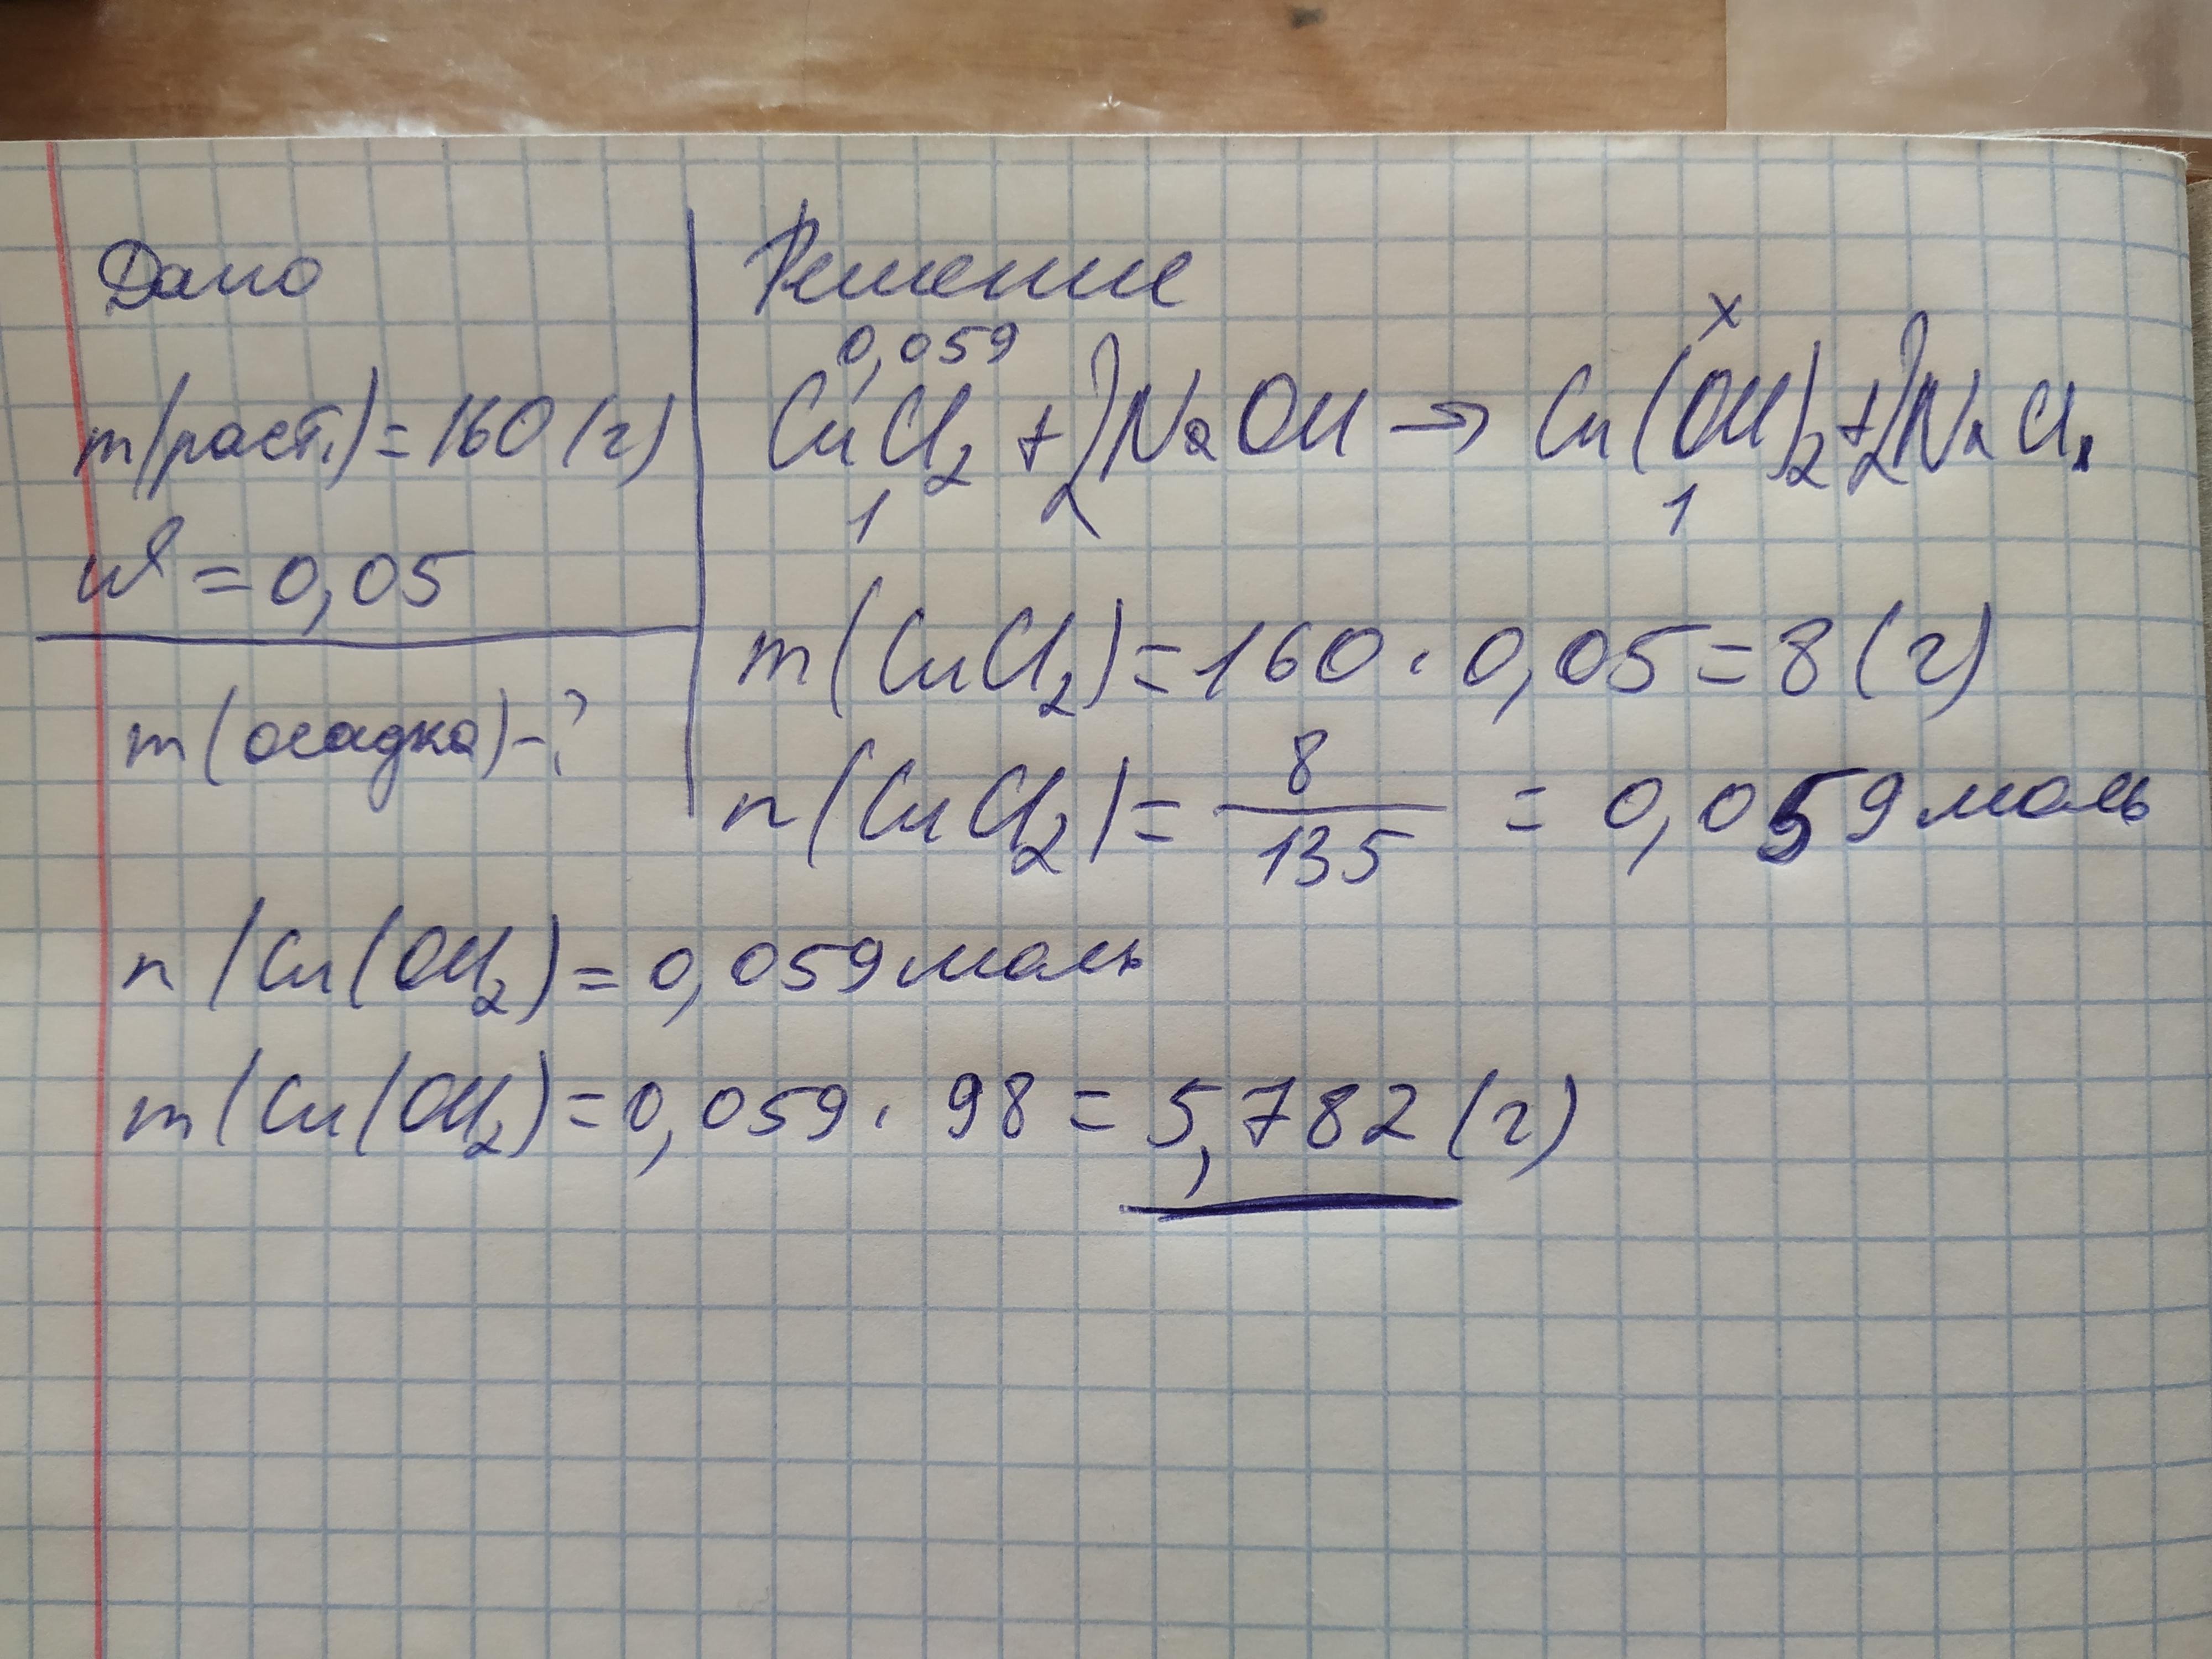 Дано
m(раст.) = 160 (г)
w = 0,05
m (осадка) - ?
Решение
0,059 x
CuCl₂ + 2NaOH → Cu(OH)₂ + 2NaCl
1 1
m(CuCl₂) = 160 · 0,05 = 8 (г)
n(CuCl₂) = 8/135 = 0,059 моль
n(Cu(OH₂) = 0,059 моль
m(Cu(OH₂) = 0,059 · 98 = 5,782 (г)